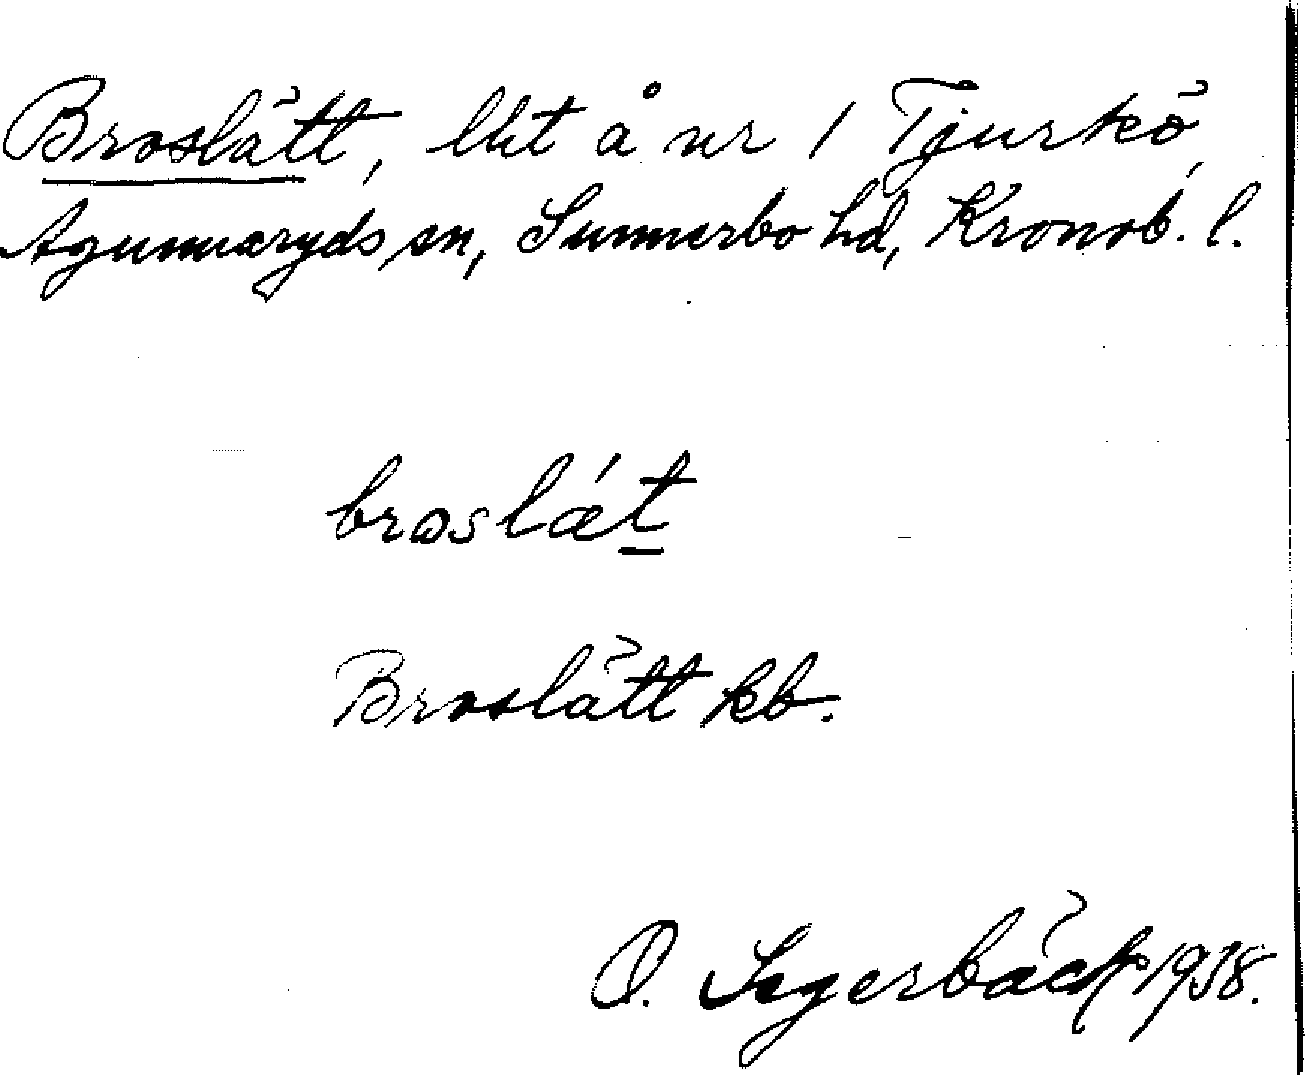 Broslätt, lht å nr 1 Tjurkö,
Agunnaryds sn, Sunnerbo hd, Kronob. l.
broslǽt
Broslätt kb.
O. Segerbäck 1938.